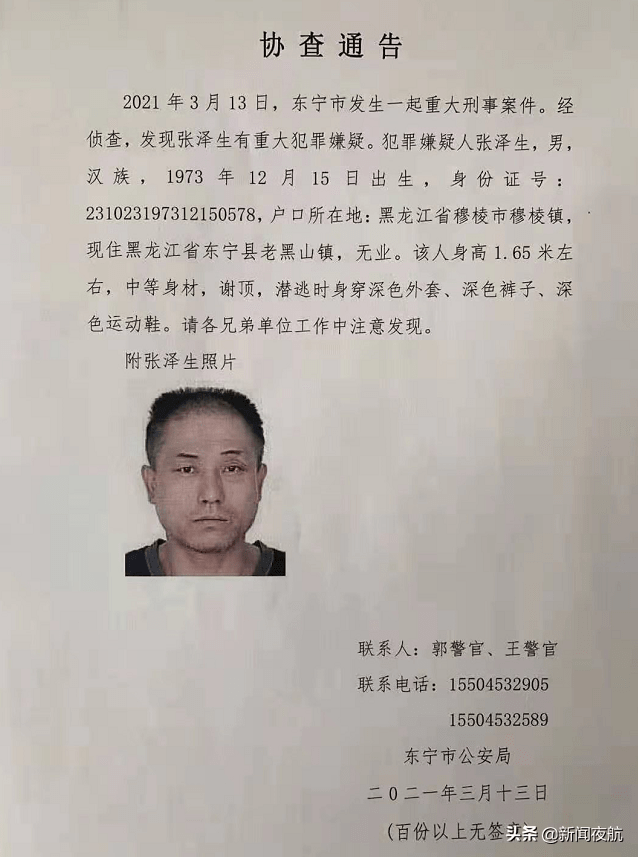 协查通告
2021年3月13日，东宁市发生一起重大刑事案件。经
侦查，发现张泽生有重大犯罪嫌疑。犯罪嫌疑人张泽生，男，
汉族，1973年12月15日出生，身份证号：
231023197312150578，户口所在地：黑龙江省穆棱市穆棱镇，
现住黑龙江省东宁县老黑山镇，无业。该人身高1.65米左
右，中等身材，谢顶，潜逃时身穿深色外套、深色裤子、深
色运动鞋。请各兄弟单位工作中注意发现。
附张泽生照片
联系人：郭警官、王警官
联系电话：15504532905
15504532589
东宁市公安局
二0二一年三月十三日
(百份以上无签章)
头条@新闻夜航